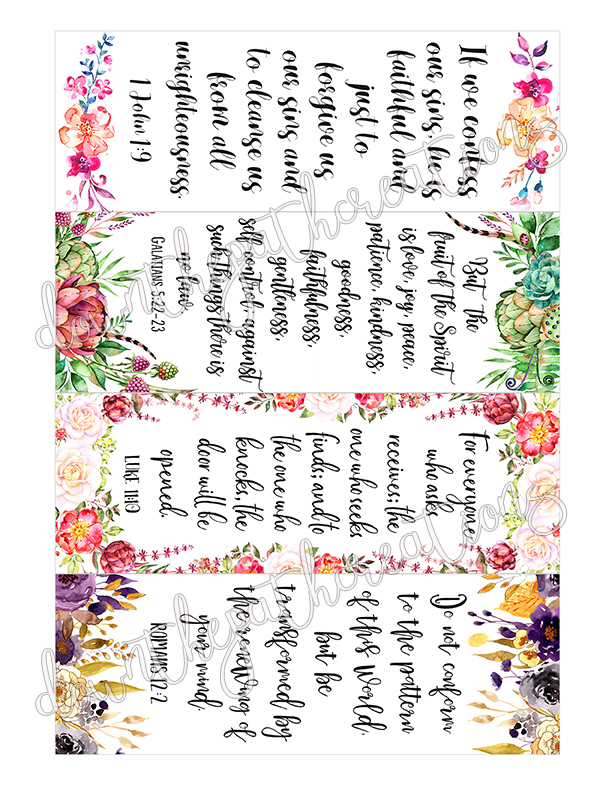 If we confess
our sins, he is
faithful and
just to
forgive us
our sins and
to cleanse us
from all
unrighteousness.
1 John 1:9
But the
fruit of the Spirit
is love, joy, peace,
patience, kindness,
goodness,
faithfulness,
gentleness,
self control; against
such things there is
no law.
GALATIANS 5:22-23
For everyone
who asks
receives; the
one who seeks
finds; and to
the one who
knocks, the
door will be
opened.
LUKE 11:10
Do not conform
to the pattern
of this World,
but be
transformed by
the renewing of
your mind.
ROMANS 12:2
downthepathcreations
downthepathcreations